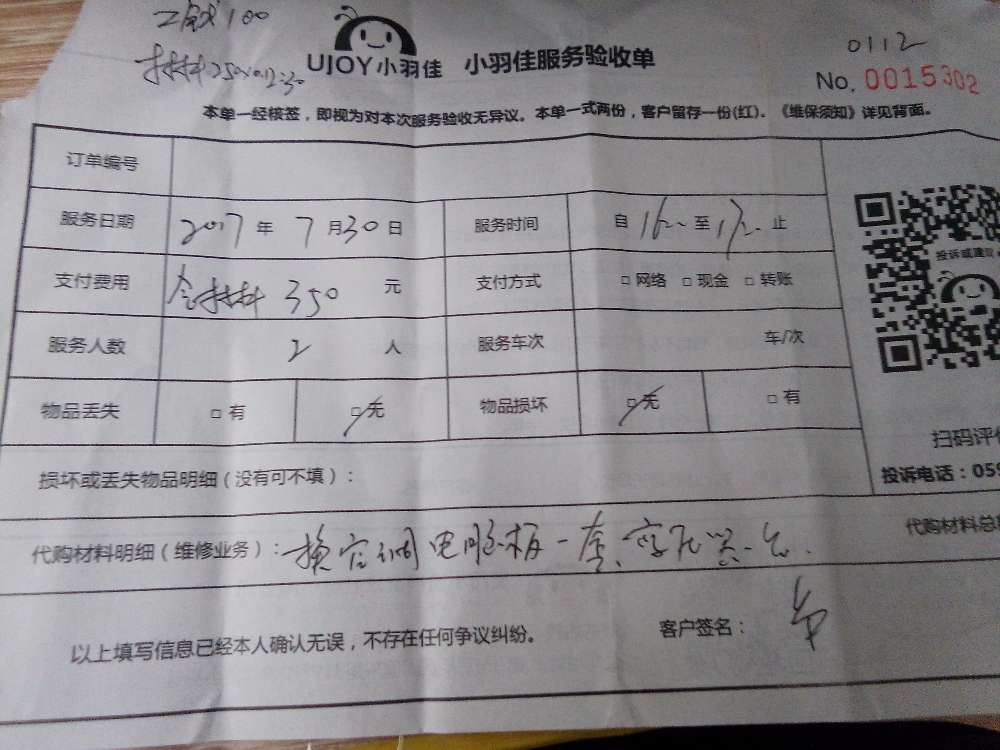 100
UJOY小羽佳 小羽佳服务验收单
0112
No. 0015302
本单一经核签，即视为对本次服务验收无异议。本单一式两份，客户留存一份(红)。《维保须知》详见背面。
订单编号
服务日期 2017 年 7 月 30 日 服务时间 自 16 至 17 止
投诉或建议
支付费用 含材料 350 元 支付方式 □ 网络 □ 现金 □ 转账
服务人数 2 人 服务车次 车/次
物品丢失 □ 有 □ 无 物品损坏 □ 无 □ 有
扫码评
损坏或丢失物品明细（没有可不填）：
投诉电话：059
代购材料明细（维修业务）：换空调电脑板一套
代购材料总
以上填写信息已经本人确认无误，不存在任何争议纠纷。 客户签名：